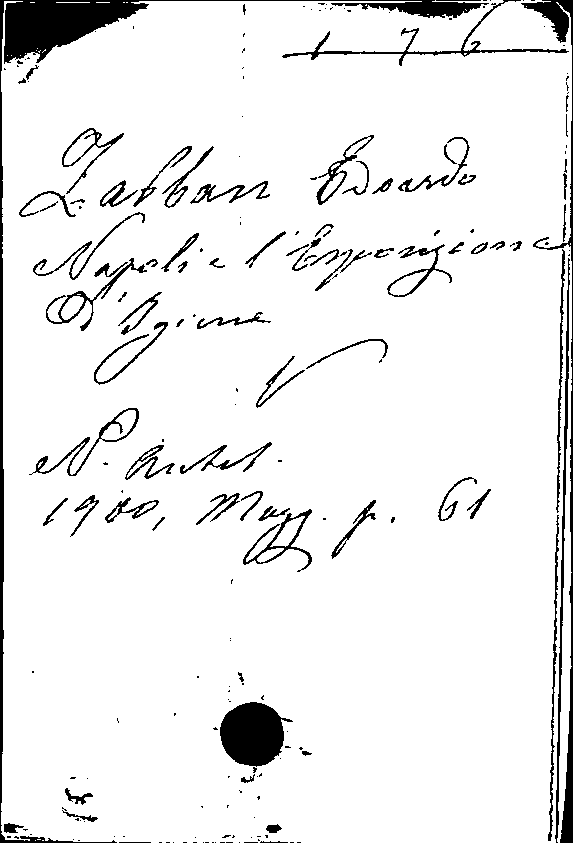 176
Zabban Edoardo
Napoli e l'Esposizione
d'Igiene
N. Antol.
1900, Magg. p. 61